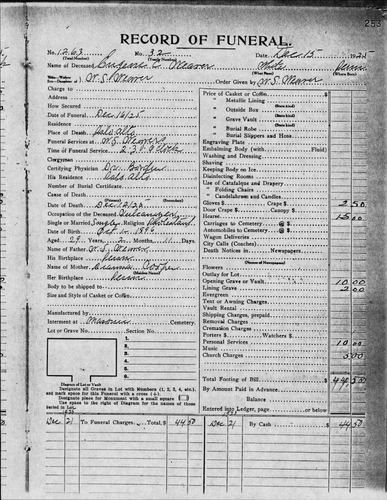 253
RECORD OF FUNERAL.
No. 1263 No. 32 Date, Dec 15 1925
(Total Number) (Yearly Number)
Name of Deceased, Eugene C. Weaver White Penn
(What Race) (Where Born)
W. S. Weaver Order Given by W. S. Weaver
Charge to
Address
How Secured
Date of Funeral, Dec 16/25
Residence
Place of Death, Palo Alto
Funeral Services at W. S. Weavers
Time of Funeral Service, 2:30 O'Clock
Clergyman
Certifying Physician
His Residence Palo Alto
Number of Burial Certificate
Cause of Death
Date of Death Dec 12/25
Occupation of the Deceased Vulcanizer
Single or Married Single Religion
Date of Birth Oct 1, 1896
Aged 29 Years, 2 Months, 11 Days.
Name of Father W. S. Weaver
His Birthplace Penn
Name of Mother
Her Birthplace Penn
Body to be shipped to
Size and Style of Casket or Coffin
Manufactured by
Interment at Masonic Cemetery.
Lot or Grave No. Section No.
1.
2.
3.
4.
5.
6.
Diagram of Lot or Vault
Designate all Graves in Lot with Numbers (1, 2, 3, 4, etc.), and mark space for this Funeral with a cross (+).
Designate place for Monument with a small square □
Use space to right of Diagram for the names of those buried in Lot.
Price of Casket or Coffin
" Metallic Lining
" Outside Box
" Grave Vault
" Burial Robe
" Burial Slippers and Hose
Engraving Plate
Embalming Body (with Fluid)
Washing and Dressing
Shaving
Keeping Body on Ice
Disinfecting Rooms
Use of Catafalque and Drapery
" Folding Chairs
" Candelabrum and Candles
Gloves $ Crape $ 2 50
Door Crape $
Hearse 15 00
Carriages to Cemetery @ $
Automobiles to Cemetery @ $
Wagon Deliveries
City Calls (Coaches)
Death Notices in Newspapers
(Names of Newspapers)
Flowers
Outlay for Lot
Opening Grave or Vault 10 00
Lining Grave 2 00
Evergreen
Tent or Awning Charges
Vault Rental
Shipping Charges, prepaid
Removal Charges
Cremation Charges
Porters $ Watchers $
Personal Services 10 00
Music
Church Charges 5 00
Total Footing of Bill $ 44 50
By Amount Paid in Advance
Balance
Entered into Ledger, page or below
Dec 21 To Funeral Charges $ 44 50 Dec 21 By Cash $ 44 50